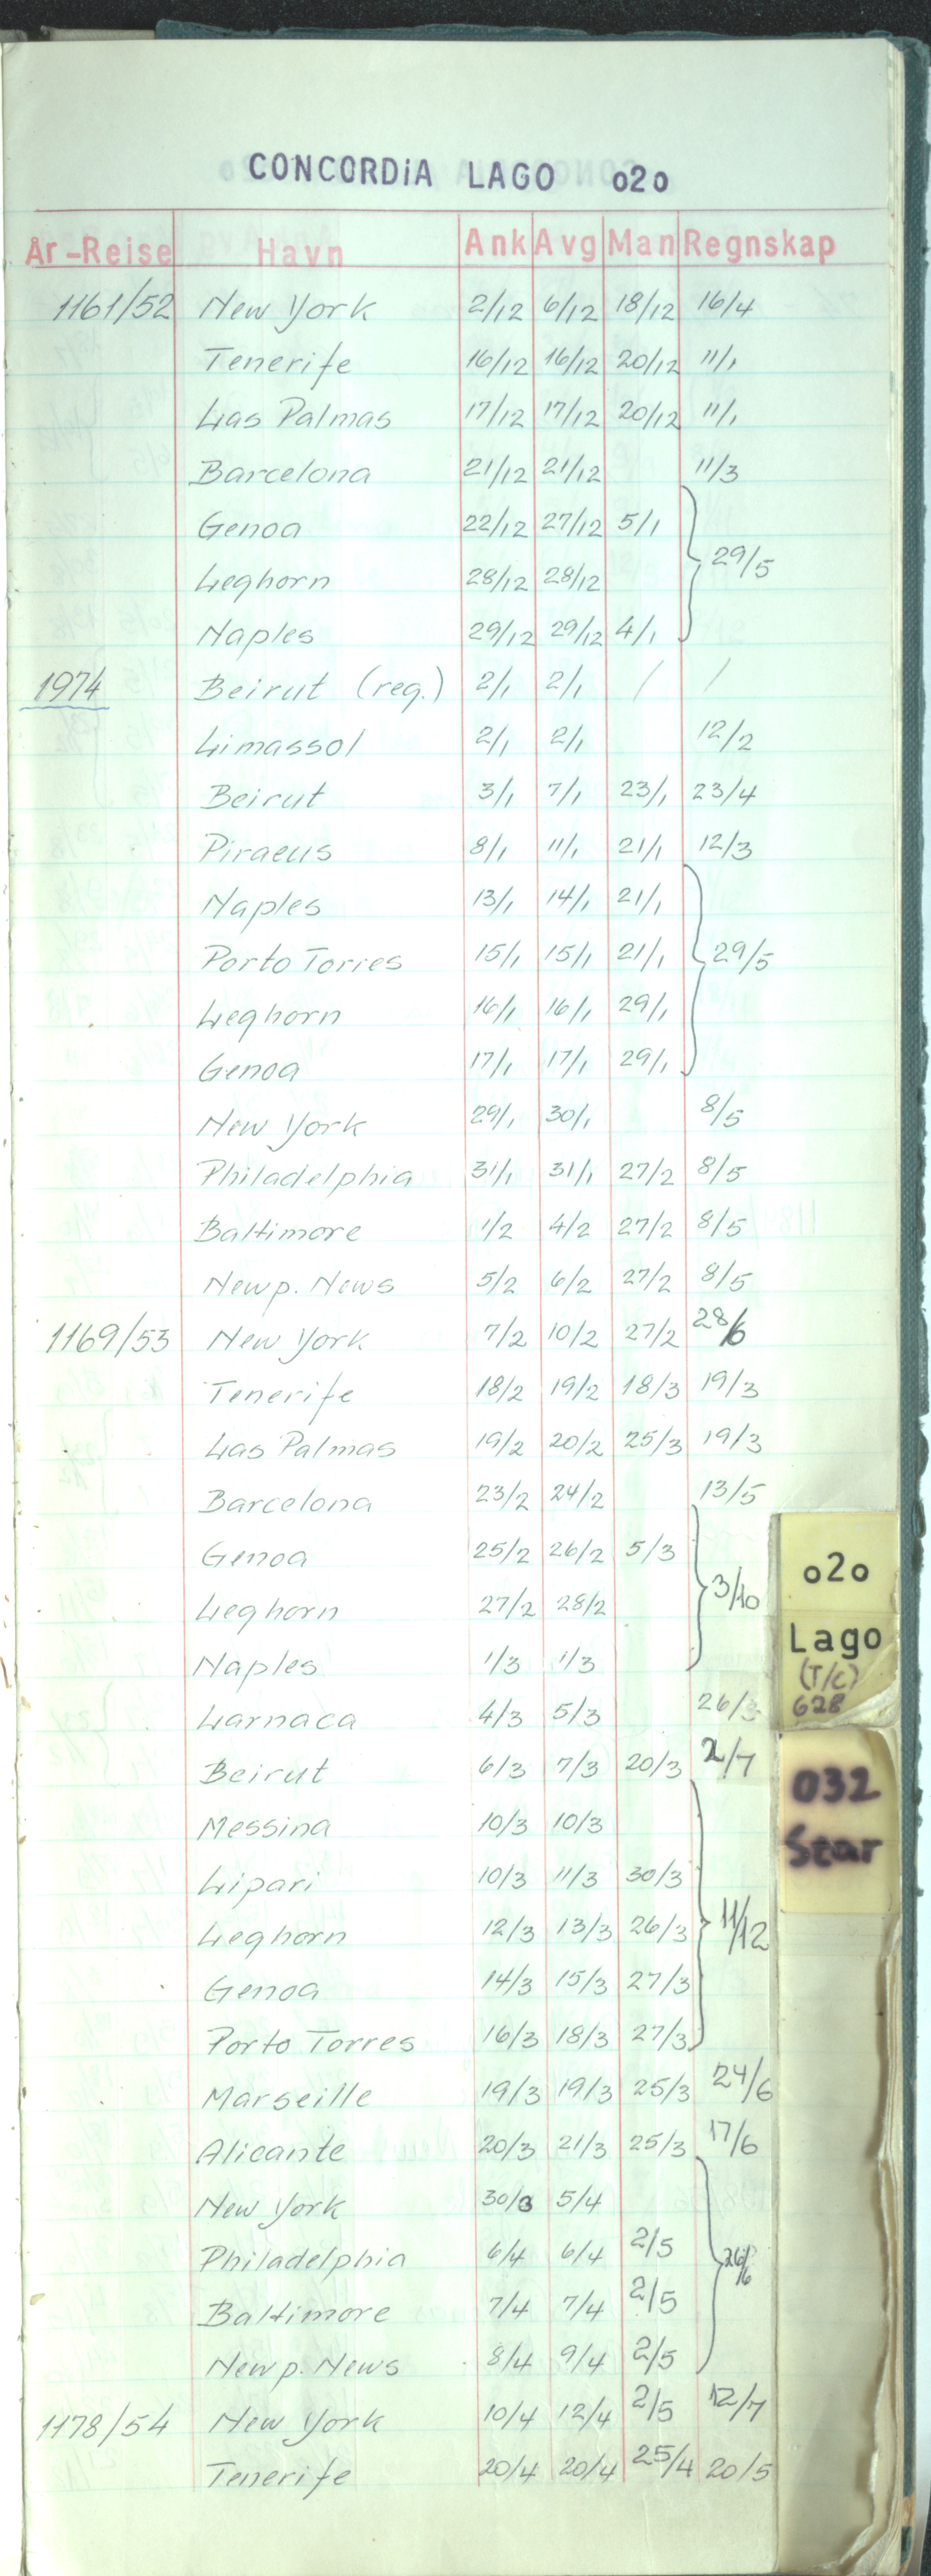 CONCORDiA LAGO o2o
År-Reise Havn Ank Avg Man Regnskap
1161/52 New York 2/12 6/12 18/12 16/4
Tenerife 16/12 16/12 20/12 11/1
Las Palmas 17/12 17/12 20/12 11/1
Barcelona 21/12 21/12 11/3
Genoa 22/12 27/12 5/1
Leghorn 28/12 28/12 29/5
Naples 29/12 29/12 4/1
1974 Beirut (reg.) 2/1 2/1 / /
Limassol 2/1 2/1 12/2
Beirut 3/1 7/1 23/1 23/4
Piraeus 8/1 11/1 21/1 12/3
Naples 13/1 14/1 21/1
Porto Torres 15/1 15/1 21/1 29/5
Leghorn 16/1 16/1 29/1
Genoa 17/1 17/1 29/1
New York 29/1 30/1 8/5
Philadelphia 31/1 31/1 27/2 8/5
Baltimore 1/2 4/2 27/2 8/5
Newp. News 5/2 6/2 27/2 8/5
1169/53 New York 7/2 10/2 27/2 28/6
Tenerife 18/2 19/2 18/3 19/3
Las Palmas 19/2 20/2 25/3 19/3
Barcelona 23/2 24/2 13/5
Genoa 25/2 26/2 5/3
Leghorn 27/2 28/2 3/10
Naples 1/3 1/3
Larnaca 4/3 5/3 26/3
Beirut 6/3 7/3 20/3 2/7
Messina 10/3 10/3
Lipari 10/3 11/3 30/3
Leghorn 12/3 13/3 26/3 11/12
Genoa 14/3 15/3 27/3
Porto Torres 16/3 18/3 27/3
Marseille 19/3 19/3 25/3 24/6
Alicante 20/3 21/3 25/3 17/6
New York 30/3 5/4
Philadelphia 6/4 6/4 2/5 26/6
Baltimore 7/4 7/4 2/5
Newp. News 8/4 9/4 2/5
1178/54 New York 10/4 12/4 2/5 12/7
Tenerife 20/4 20/4 25/4 20/5
o2o
Lago
(T/C)
628
032
Star